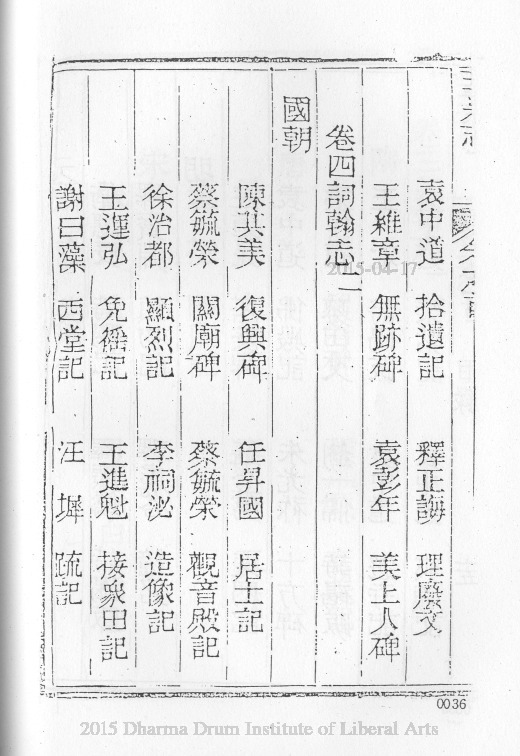 袁中道 拾遺記 釋正誨 理廢文
王維章 無跡碑 袁彭年 美上人碑
卷四詞翰志二
國朝
陳其美 復興碑 任昇國 居士記
蔡毓榮 關廟碑 蔡毓榮 觀音殿記
徐治都 顯烈記 李祠泌 造像記
王運弘 免徭記 王進魁 接衆田記
謝曰藻 西堂記 汪墀 疏記
2015-04-17
0036
2015 Dharma Drum Institute of Liberal Arts